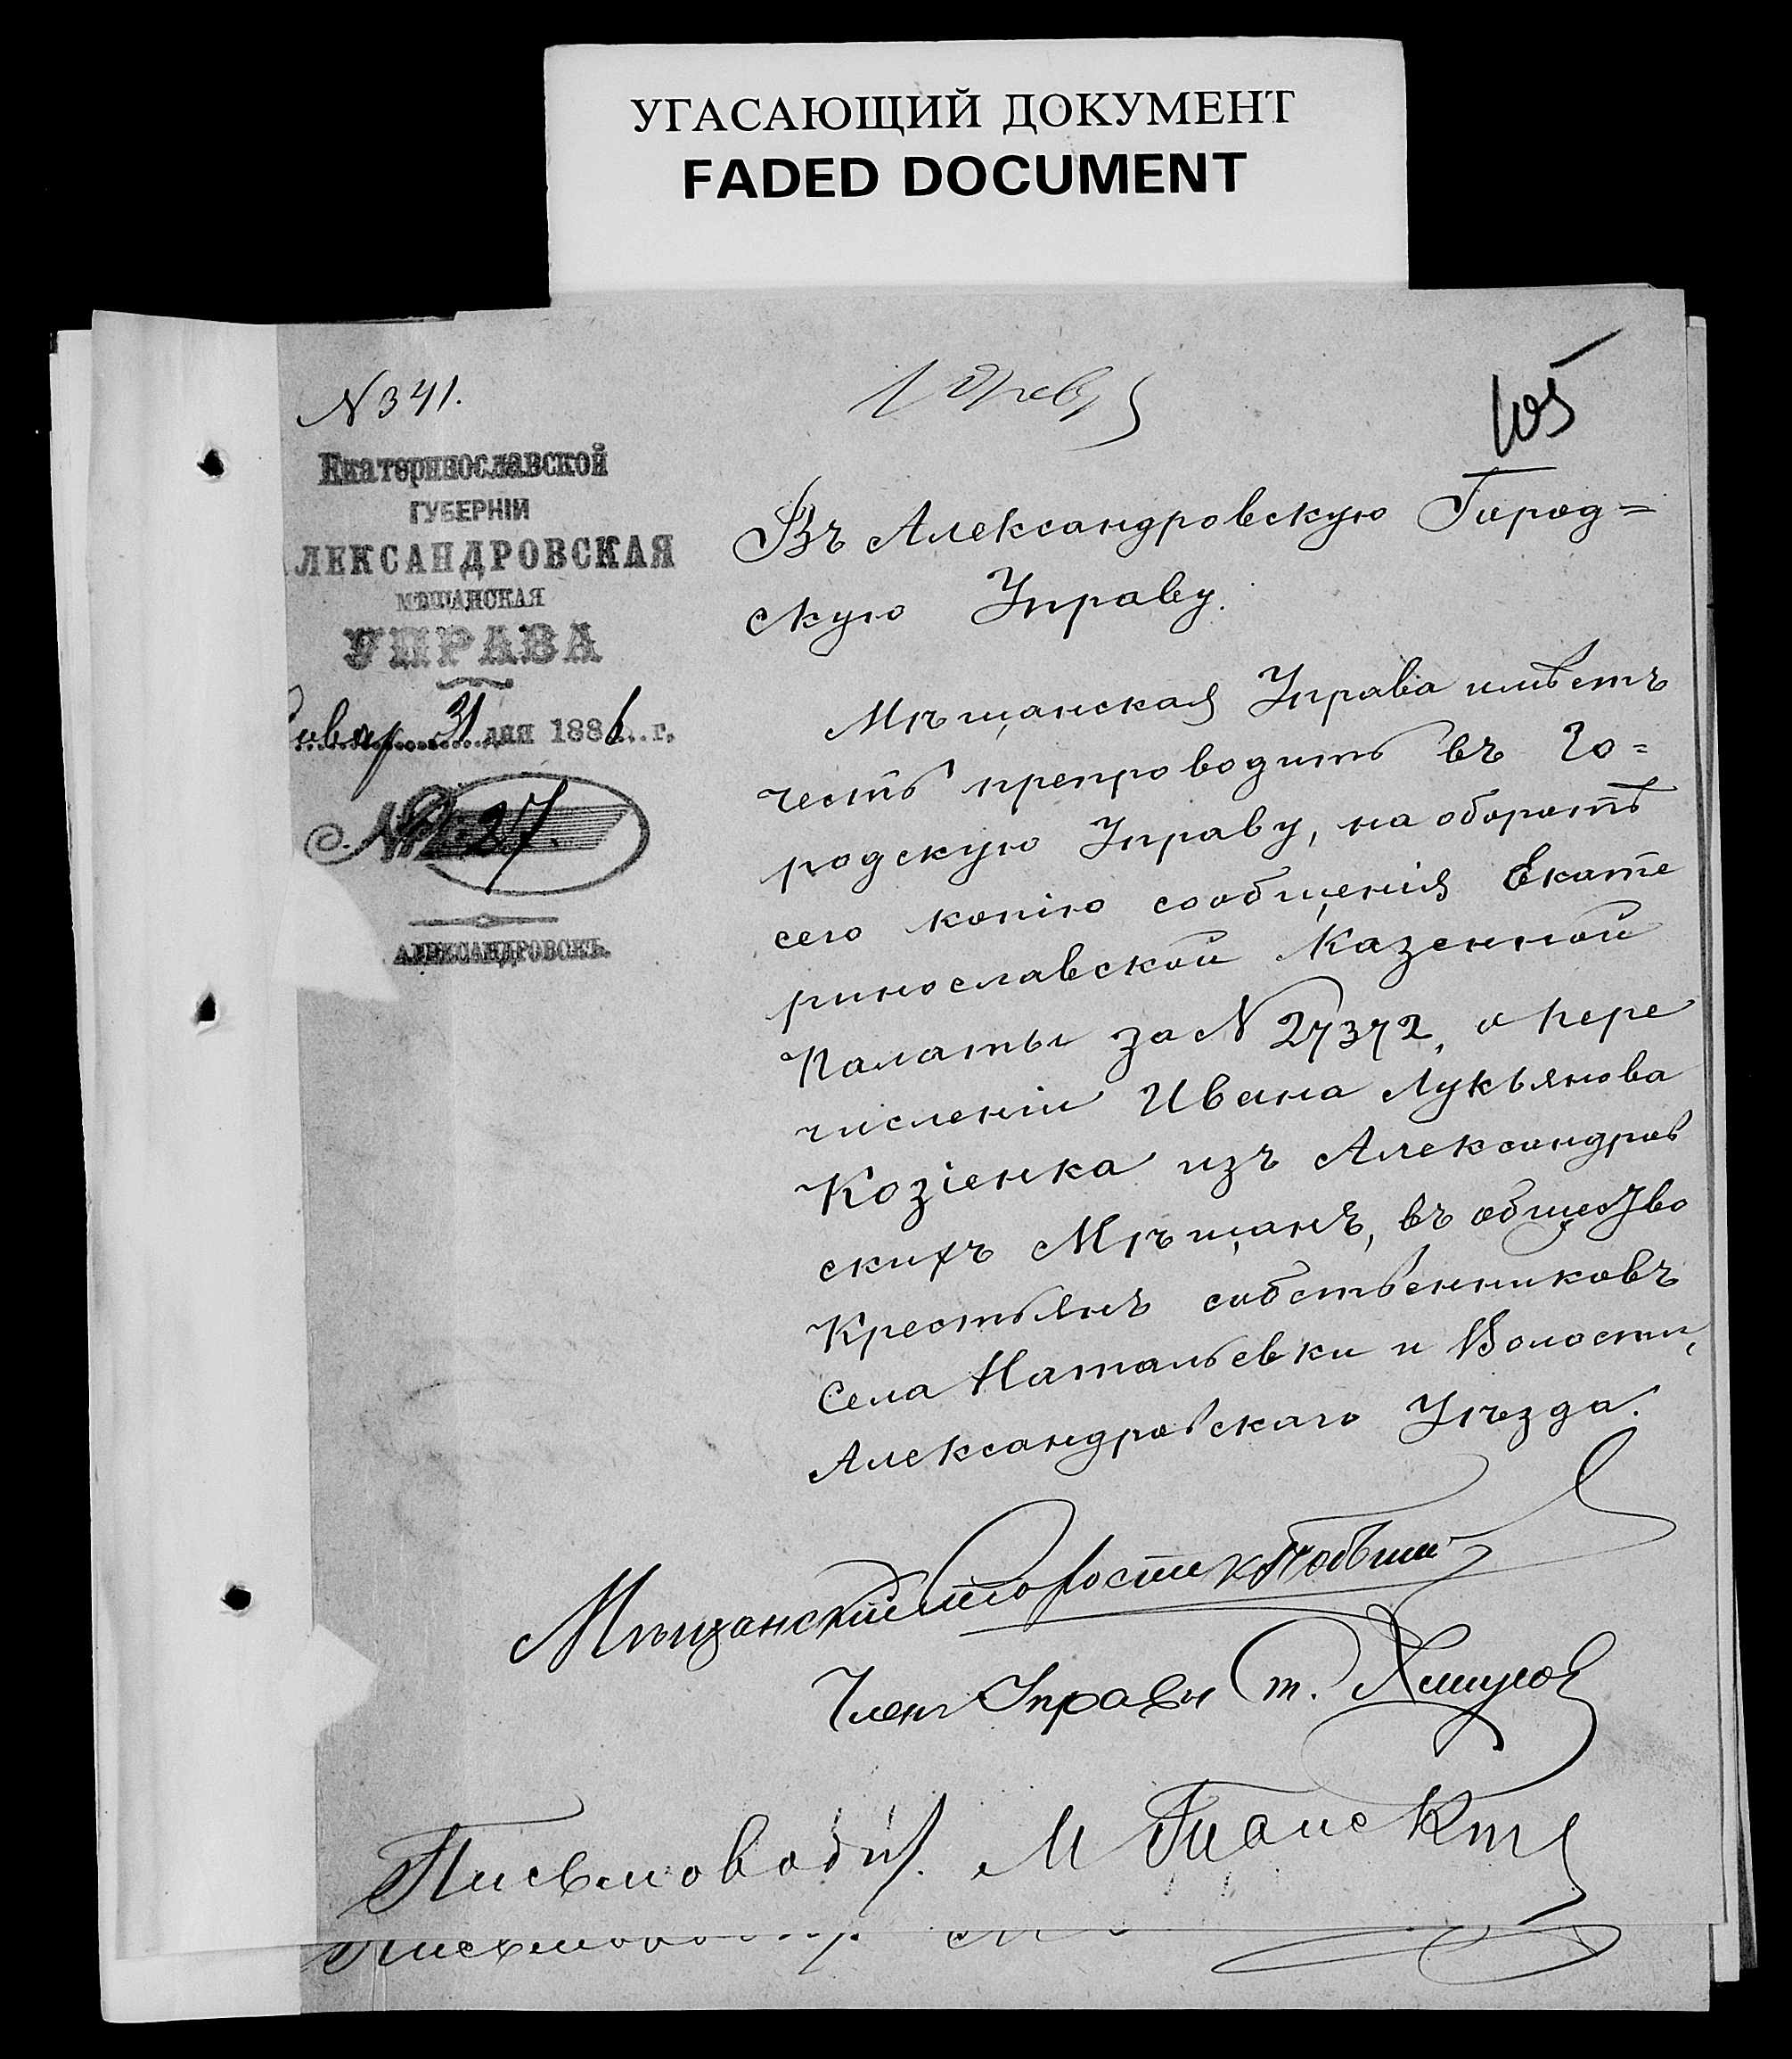 УГАСАЮЩИЙ ДОКУМЕНТ
FADED DOCUMENT
N 341.
1 Февр
105
Екатеринославской
ГУБЕРНІИ
ЛЕКСАНДРОВСКАЯ
МѢЩАНСКАЯ
УПРАВА
Январ 31 дня 1881 г.
№ 27.
АЛЕКСАНДРОВСКЪ.
Въ Александровскую Город=
скую Управу.
Мѣщанская Управа имѣетъ
честь препроводить въ Го=
родскую Управу, на оборотѣ
сего копію сообщенія Екате
ринославской Казенной
Палаты за N 27372, о пере
численіи Ивана Лукьянова
Козіенка изъ Александров
скихъ Мѣщанъ, въ общество
Крестьянъ собственниковъ
Села Натальевки и Волости,
Александровскаго Уѣзда.
Мѣщанскій Староста
Членъ Управы
Письмоводит. М